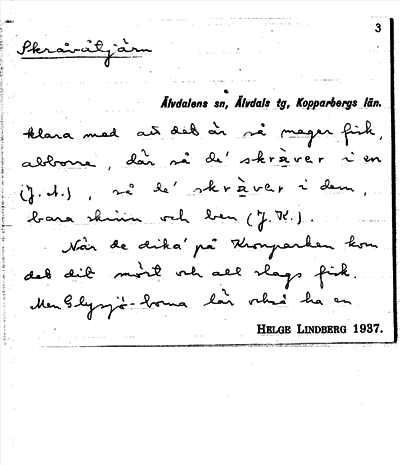 3
Skråvåtjärn
Älvdalens sn, Älvdals tg, Kopparbergs län.
klara med att det är så mager fisk,
abborre, där så de' skràver i en
(J. A.), så de' skràver i dem,
bara skinn och ben (J. K.).
När de dika' på Kronparken kom
det dit mört och all slags fisk.
Men Glysjö-borna lär också ha en
HELGE LINDBERG 1937.